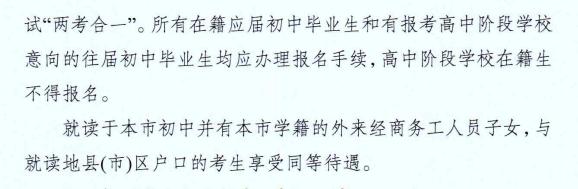 试“两考合一”。所有在籍应届初中毕业生和有报考高中阶段学校
意向的往届初中毕业生均应办理报名手续,高中阶段学校在籍生
不得报名。
就读于本市初中并有本市学籍的外来经商务工人员子女,与
就读地县(市)区户口的考生享受同等待遇。